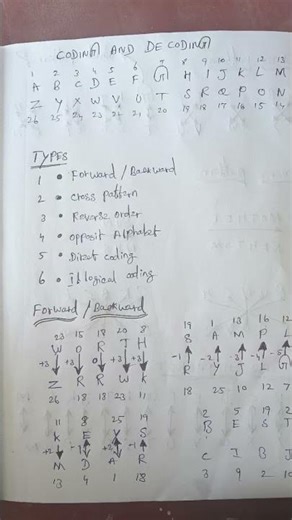 CODING AND DECODING
1 2 3 4 5 6 7 8 9 10 11 12 13
A B C D E F G H I J K L M
Z Y X W V U T S R Q P O N
26 25 24 23 22 21 20 19 18 17 16 15 14
TYPES
1 • Forward / Backward
2 • Cross pattern
3 • Reverse order
4 • Opposit Alphabet
5 • Direct coding
6 • Illogical coding
Forward / Backward
23 15 18 20 8
W O R T H
+3 +3 0 +3 +3
Z R R W K
26 18 18 23 11
11 8 25 19
K E Y S
M D A R
13 4 1 18
19 1 13 16 12
S A M P L
-1 -2 -3 -4 -5
R Y J L G
18 25 10 12 7
2 5 19 2
B E S T
C I B J
3 9 2 10